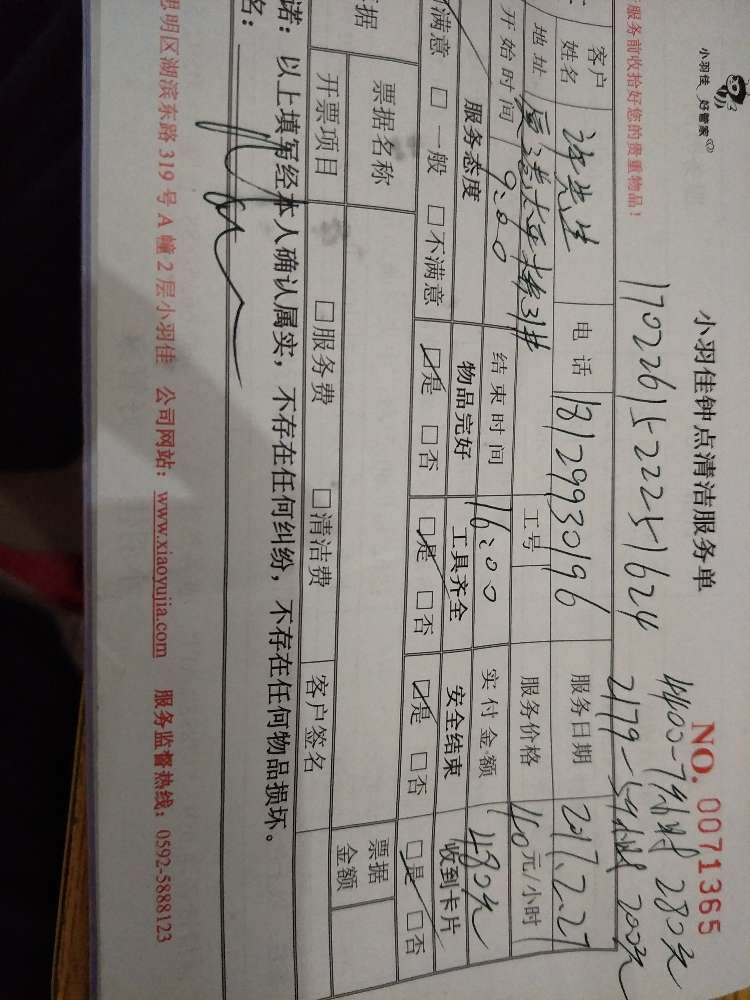 小羽佳 好管家
服务前收拾好您的贵重物品！
小羽佳钟点清洁服务单
NO. 0071365
17022615222251624
4400-7小时 280元
2179-5小时 200元
客户姓名 许先生 电话 18129930196 服务日期 2017.2.27
地址 工号 服务价格 40元/小时
开始时间 9:00 结束时间 16:00 实付金额 480元
服务态度 物品完好 工具齐全 安全结束 收到卡片
满意 □一般 □不满意 □是 □否 □是 □否 □是 □否 □是 □否
票据名称 票据金额
开票项目 □服务费 □清洁费 客户签名
诺：以上填写经本人确认属实，不存在任何纠纷，不存在任何物品损坏。
名：
思明区湖滨东路319号A幢2层小羽佳 公司网站：www.xiaoyujia.com 服务监督热线：0592-5888123